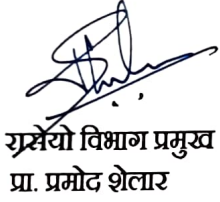 रासेयो विभाग प्रमुख
प्रा. प्रमोद शेलार